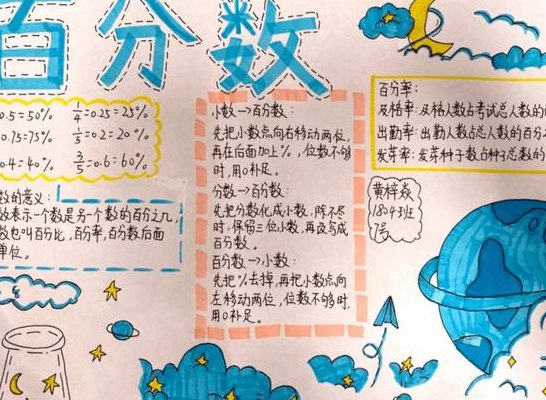 百分数
0.5=50%
1/4=0.25=25%
0.75=75%
1/5=0.2=20%
0.4=40%
3/5=0.6=60%
数的意义:
数表示一个数是另一个数的百分之几,
数也叫百分比,百分率,百分数后面
单位。
小数→百分数:
先把小数点向右移动两位,
再在后面加上%,位数不够
时,用0补足。
分数→百分数:
先把分数化成小数,除不尽
时,保留三位小数,再改写成
百分数。
百分数→小数:
先把%去掉,再把小数点向
左移动两位,位数不够时,
用0补足。
百分率:
及格率:及格人数占考试总人数的
出勤率:出勤人数占总人数的百分
发芽率:发芽种子数占种子总数的
黄梓焱
1804班
7号